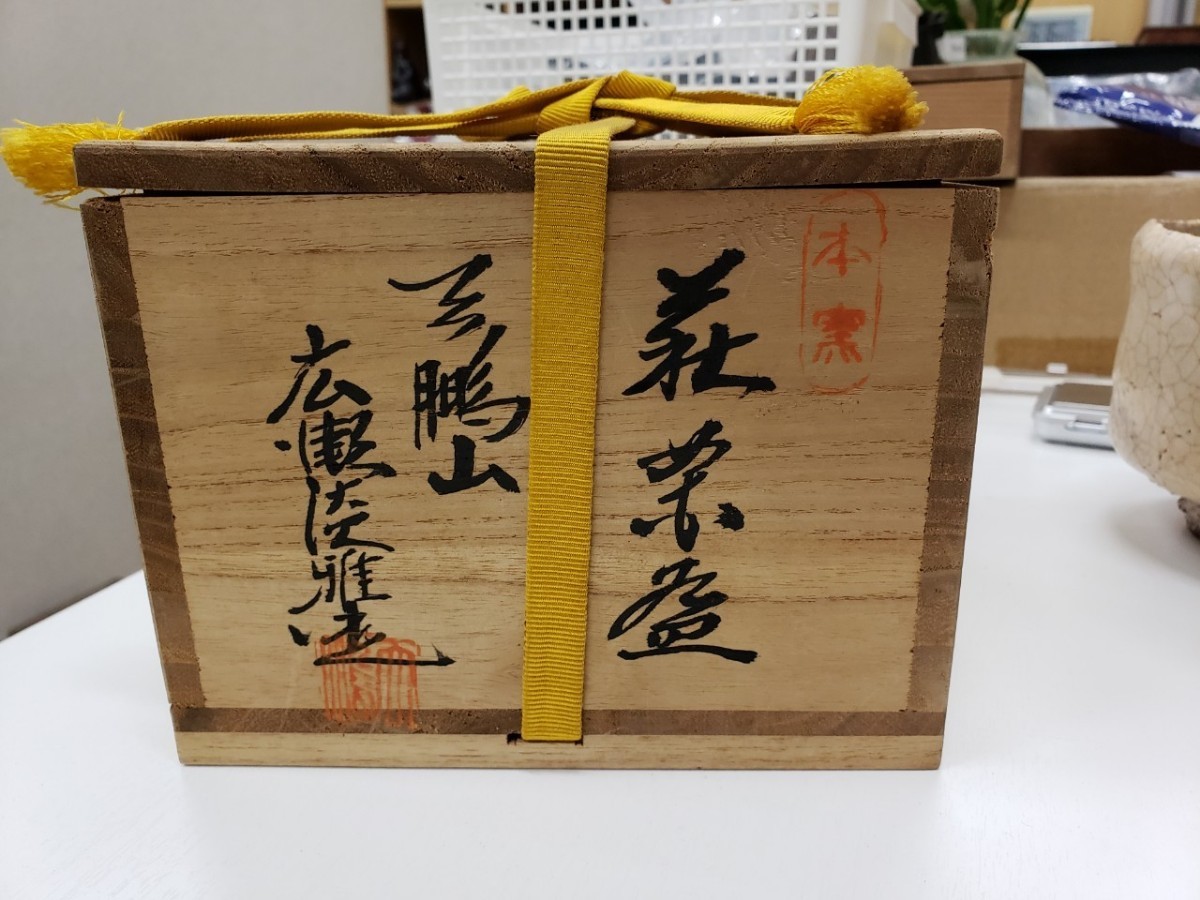 本窯
萩茶盌
天鵬山
広瀬淡雅造